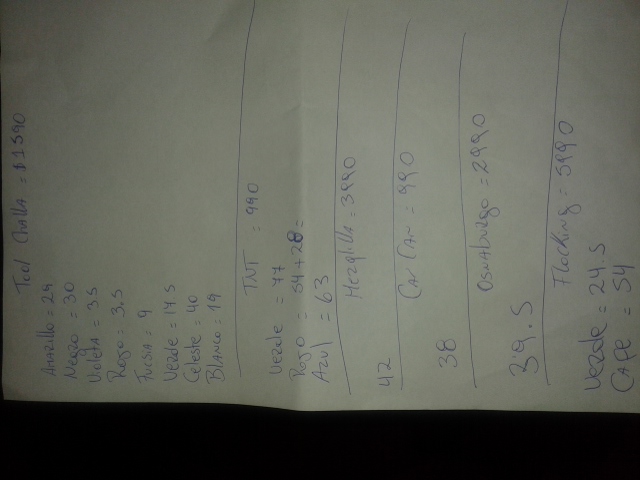 Tool Challa = $1590
Amarillo = 29
Negro = 30
Violeta = 35
Rojo = 3.5
Fucsia = 9
Verde = 17.5
Celeste = 40
Blanco = 19
TNT = 990
Verde = 77
Rojo = 54+28=
Azul = 63
Mezqlilla = 3990
42
Can Can = 990
38
Osnaburgo = 2990
39.5
Flocking = 5990
Verde = 24.5
Cafe = 54